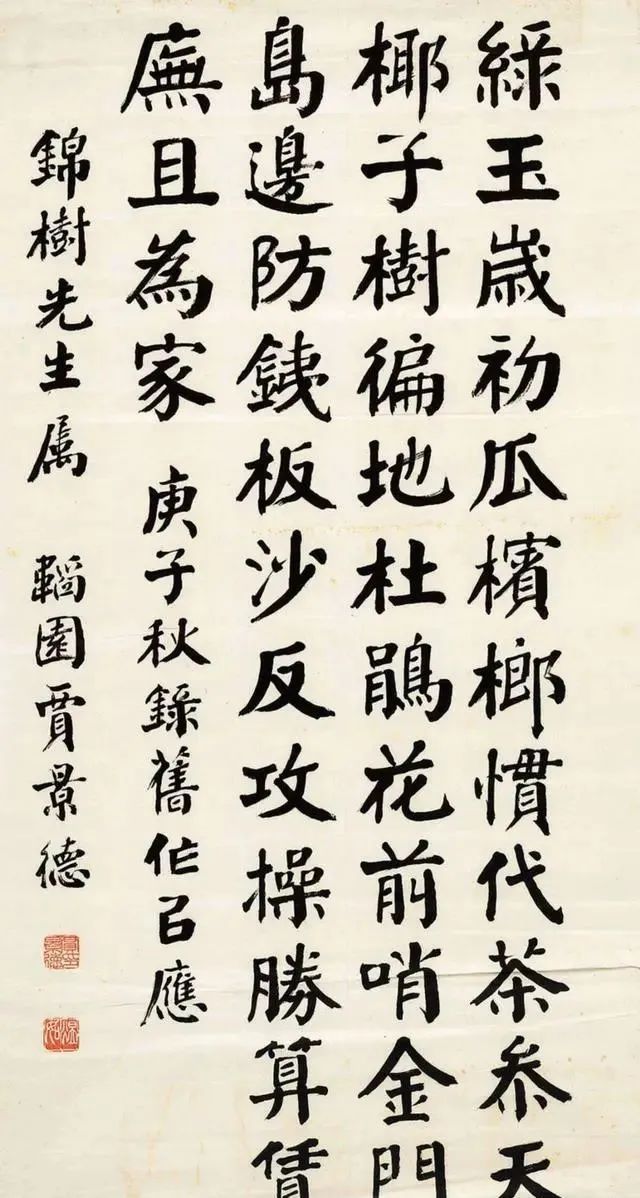 綠玉歲初瓜檳榔慣代茶參天
椰子樹徧地杜鵑花前哨金門
島邊防銕板沙反攻操勝算賃
廡且為家
庚子秋錄舊作㠯應
錦樹先生属
韜園賈景德